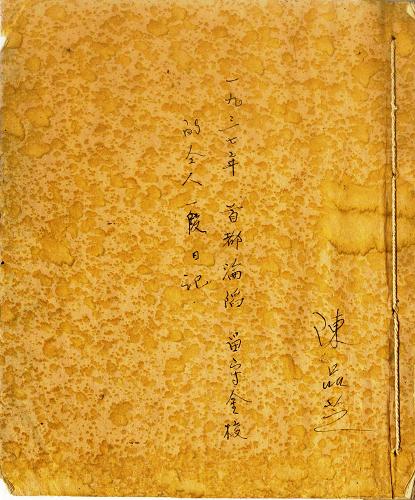 陳品芝
一九三七年 首都淪陷 留守金校
的仝人一段日記